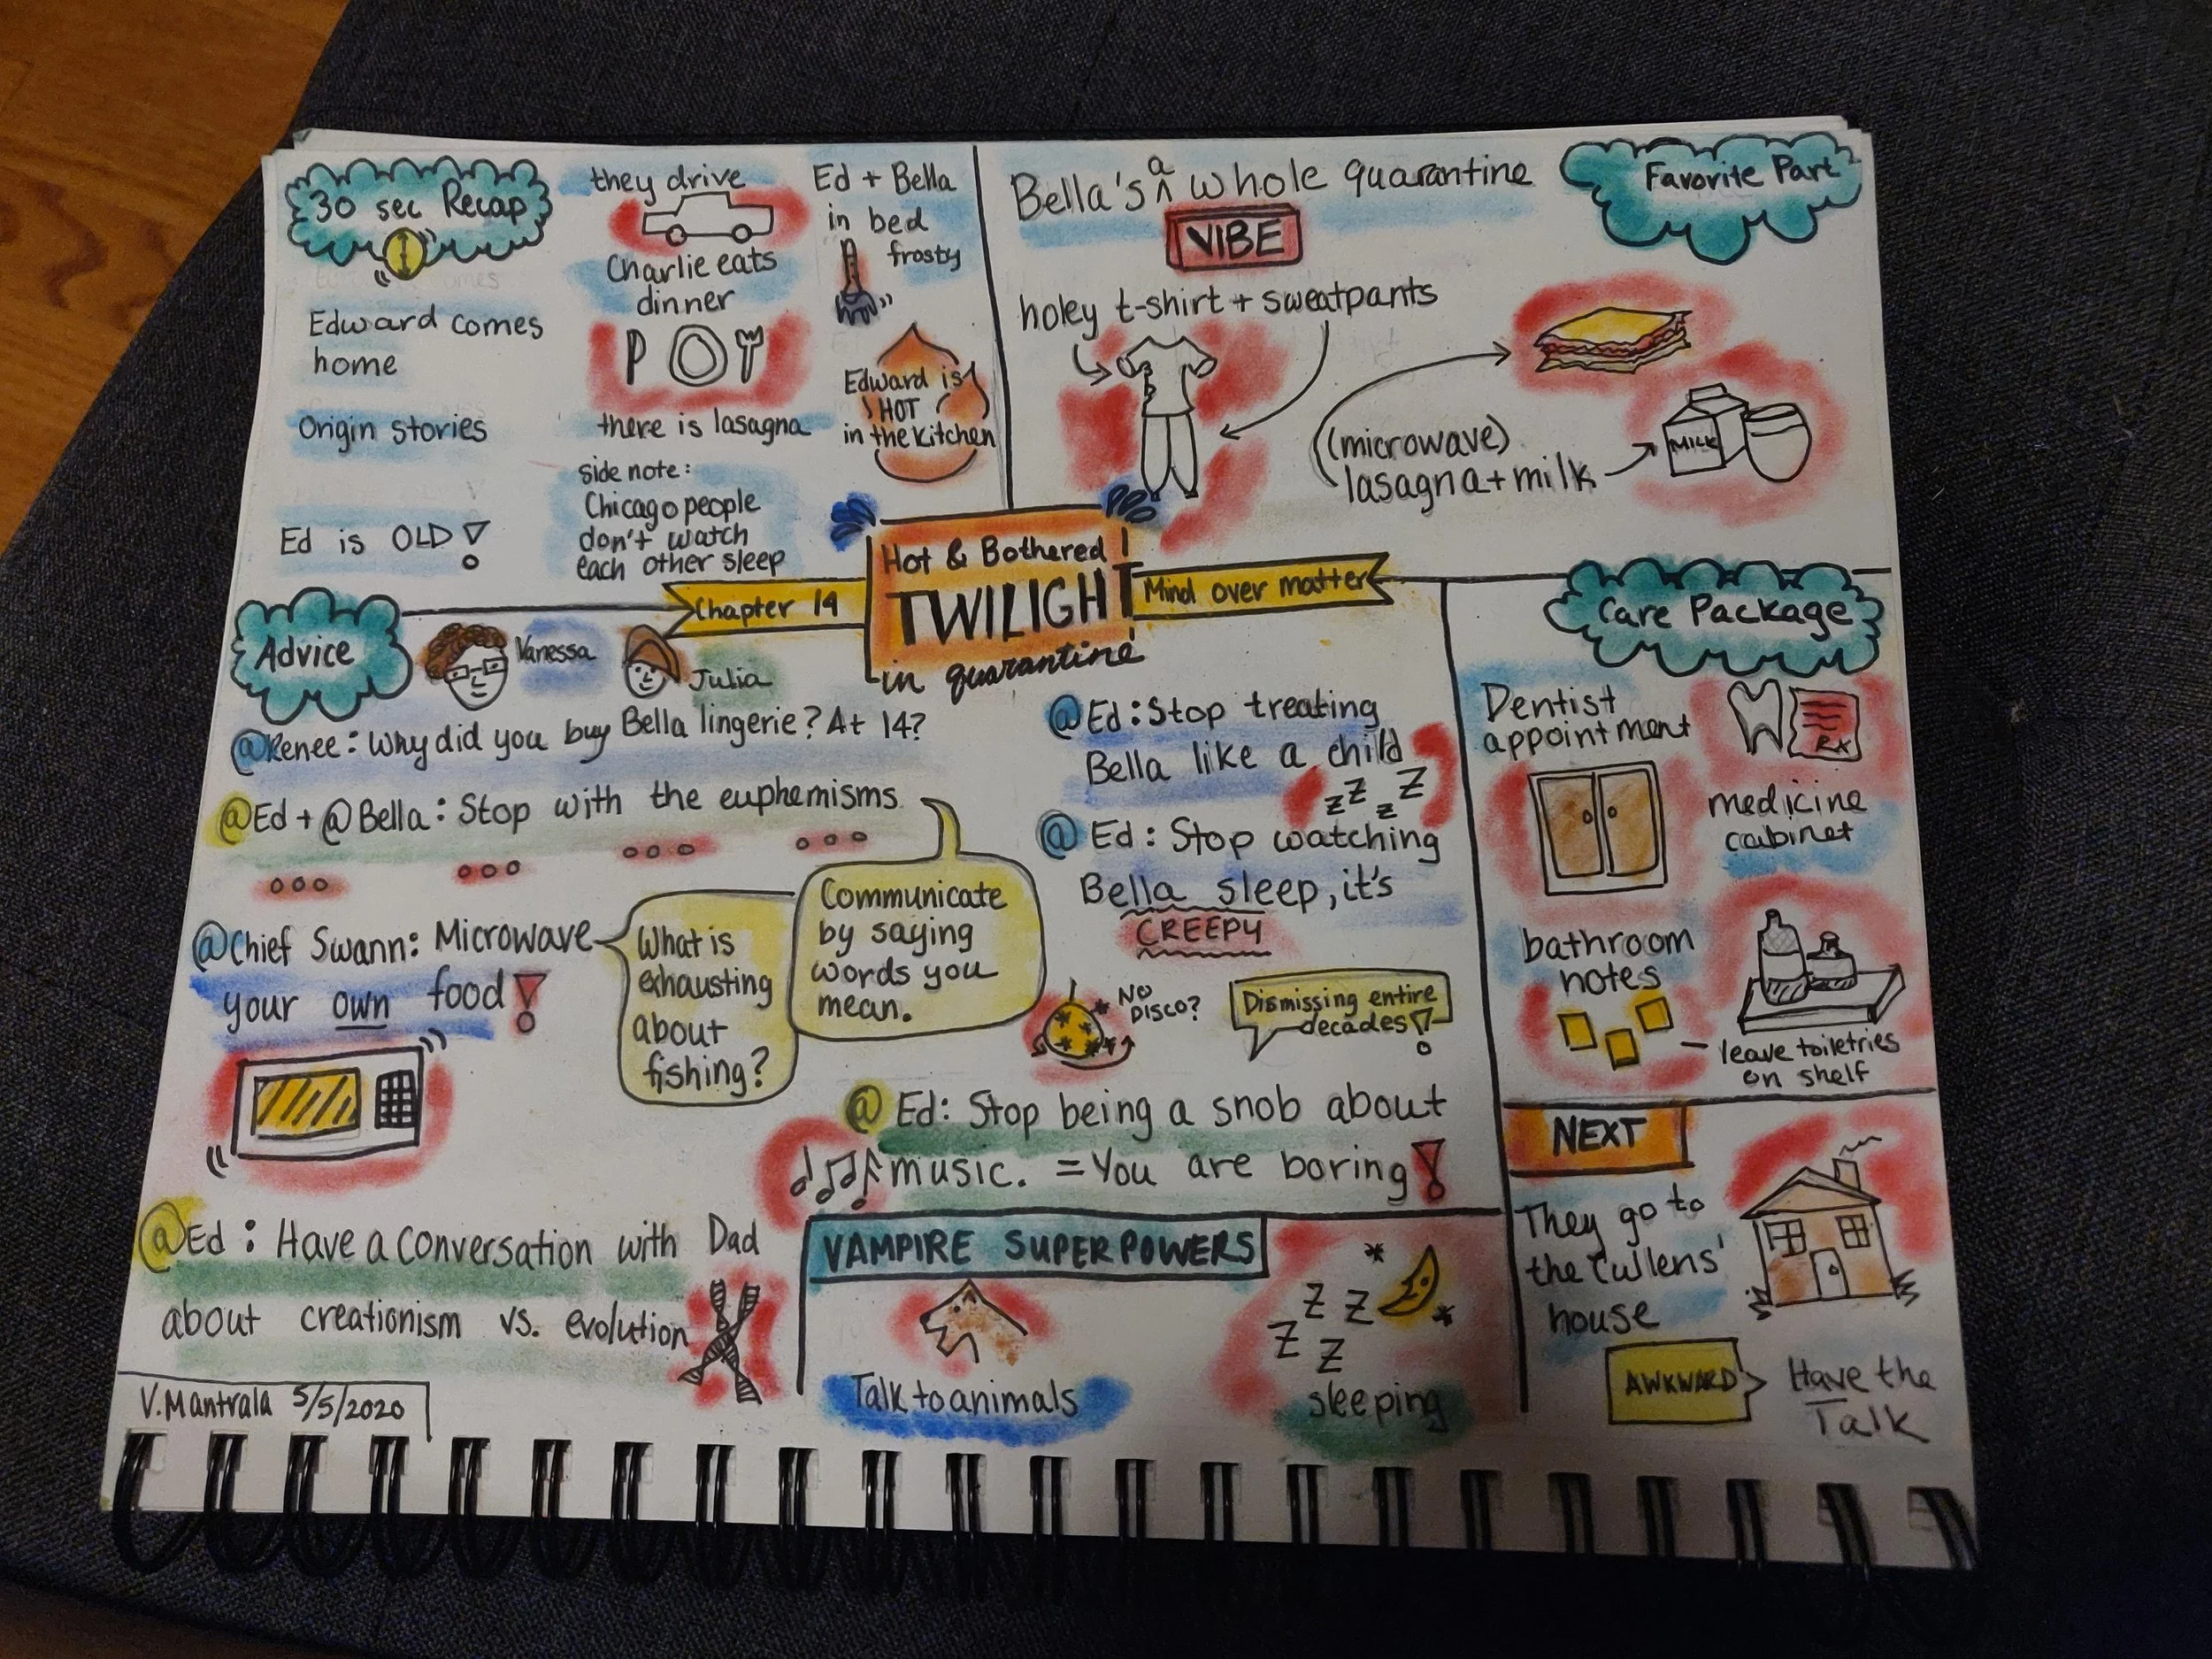 30 sec Recap
Edward comes
home
Origin stories
Ed is OLD!
they drive
Charlie eats
dinner
there is lasagna
side note:
Chicago people
don't watch
each other sleep
Ed + Bella
in bed
frosty
Edward is
HOT
in the kitchen
Favorite Part
Bella's a whole quarantine
VIBE
holey t-shirt + sweatpants
(microwave)
lasagna + milk
MILK
Chapter 14
Hot & Bothered!
TWILIGHT
in quarantine
Mind over matter
Advice
Vanessa
Julia
@Renee: Why did you buy Bella lingerie? At 14?
@Ed + @Bella: Stop with the euphemisms
Communicate
by saying
words you
mean.
@Chief Swann: Microwave
your own food!
What is
exhausting
about
fishing?
@Ed: Have a conversation with Dad
about creationism vs. evolution
@Ed: Stop treating
Bella like a child
zz z Z
@Ed: Stop watching
Bella sleep, it's
CREEPY
NO
DISCO?
Dismissing entire
decades!
@Ed: Stop being a snob about
music. = You are boring!
VAMPIRE SUPERPOWERS
Talk to animals
Z Z
Z Z
sleeping
Care Package
Dentist
appointment
RX
medicine
cabinet
bathroom
notes
leave toiletries
on shelf
NEXT
They go to
the Cullens'
house
AWKWARD
Have the
Talk
V. Mantrala 5/5/2020